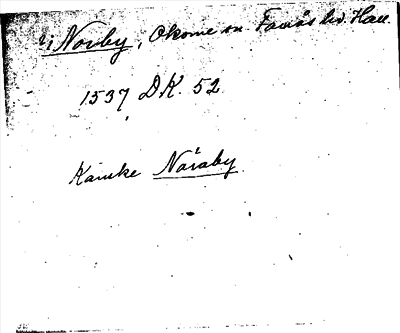 Norby, Okome sn Faurås hd. Hall.
1537 DK. 52
Kanske Naraby